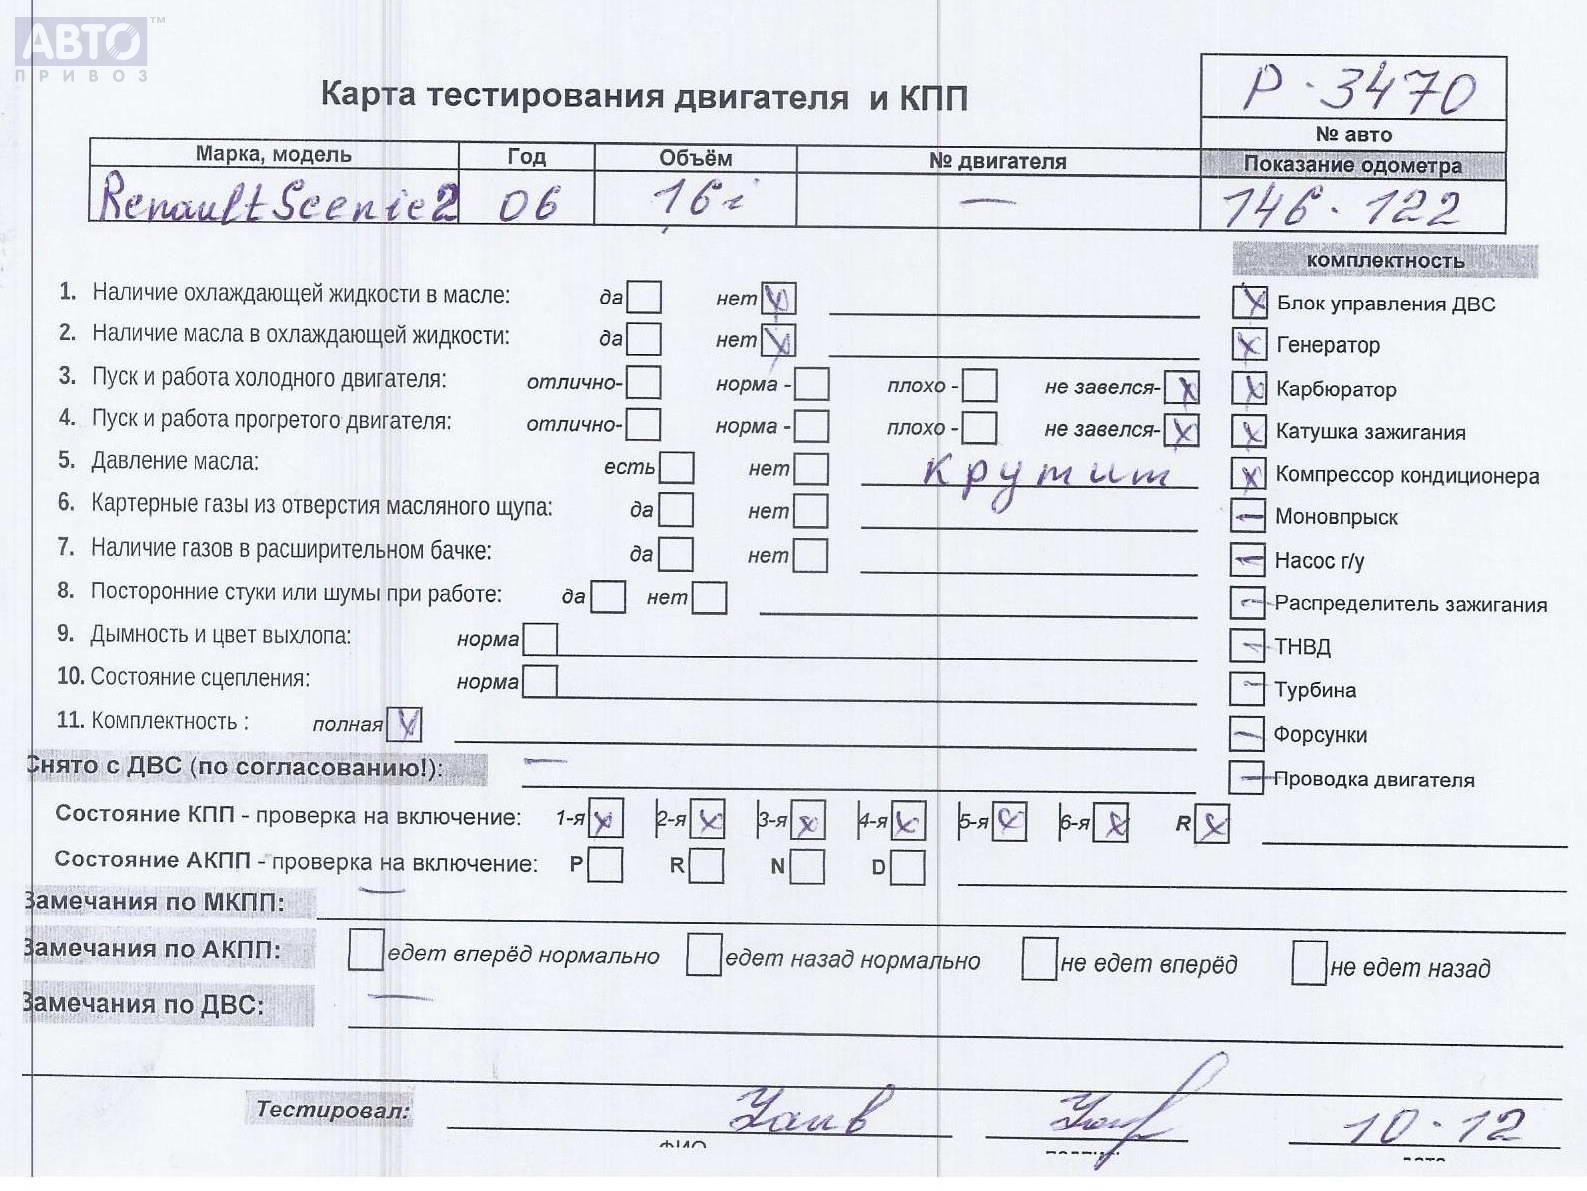 АВТО™
ПРИВОЗ
Карта тестирования двигателя и КПП
Р-3470
№ авто
Марка, модель Год Объём № двигателя Показание одометра
Renault Scenic 2 06 16i — 146.122
комплектность
1. Наличие охлаждающей жидкости в масле: да нет x
2. Наличие масла в охлаждающей жидкости: да нет x
3. Пуск и работа холодного двигателя: отлично- норма - плохо - не завелся- x
4. Пуск и работа прогретого двигателя: отлично- норма - плохо - не завелся- x
5. Давление масла: есть нет крутит
6. Картерные газы из отверстия масляного щупа: да нет
7. Наличие газов в расширительном бачке: да нет
8. Посторонние стуки или шумы при работе: да нет
9. Дымность и цвет выхлопа: норма
10. Состояние сцепления: норма
11. Комплектность : полная x
x Блок управления ДВС
x Генератор
x Карбюратор
x Катушка зажигания
x Компрессор кондиционера
— Моновпрыск
— Насос г/у
— Распределитель зажигания
— ТНВД
— Турбина
— Форсунки
— Проводка двигателя
Снято с ДВС (по согласованию!): —
Состояние КПП - проверка на включение: 1-я x 2-я x 3-я x 4-я x 5-я x 6-я x R x
Состояние АКПП - проверка на включение: P R N D
Замечания по МКПП: —
Замечания по АКПП: едет вперёд нормально едет назад нормально не едет вперёд не едет назад
Замечания по ДВС: —
Тестировал: 10.12
ФИО